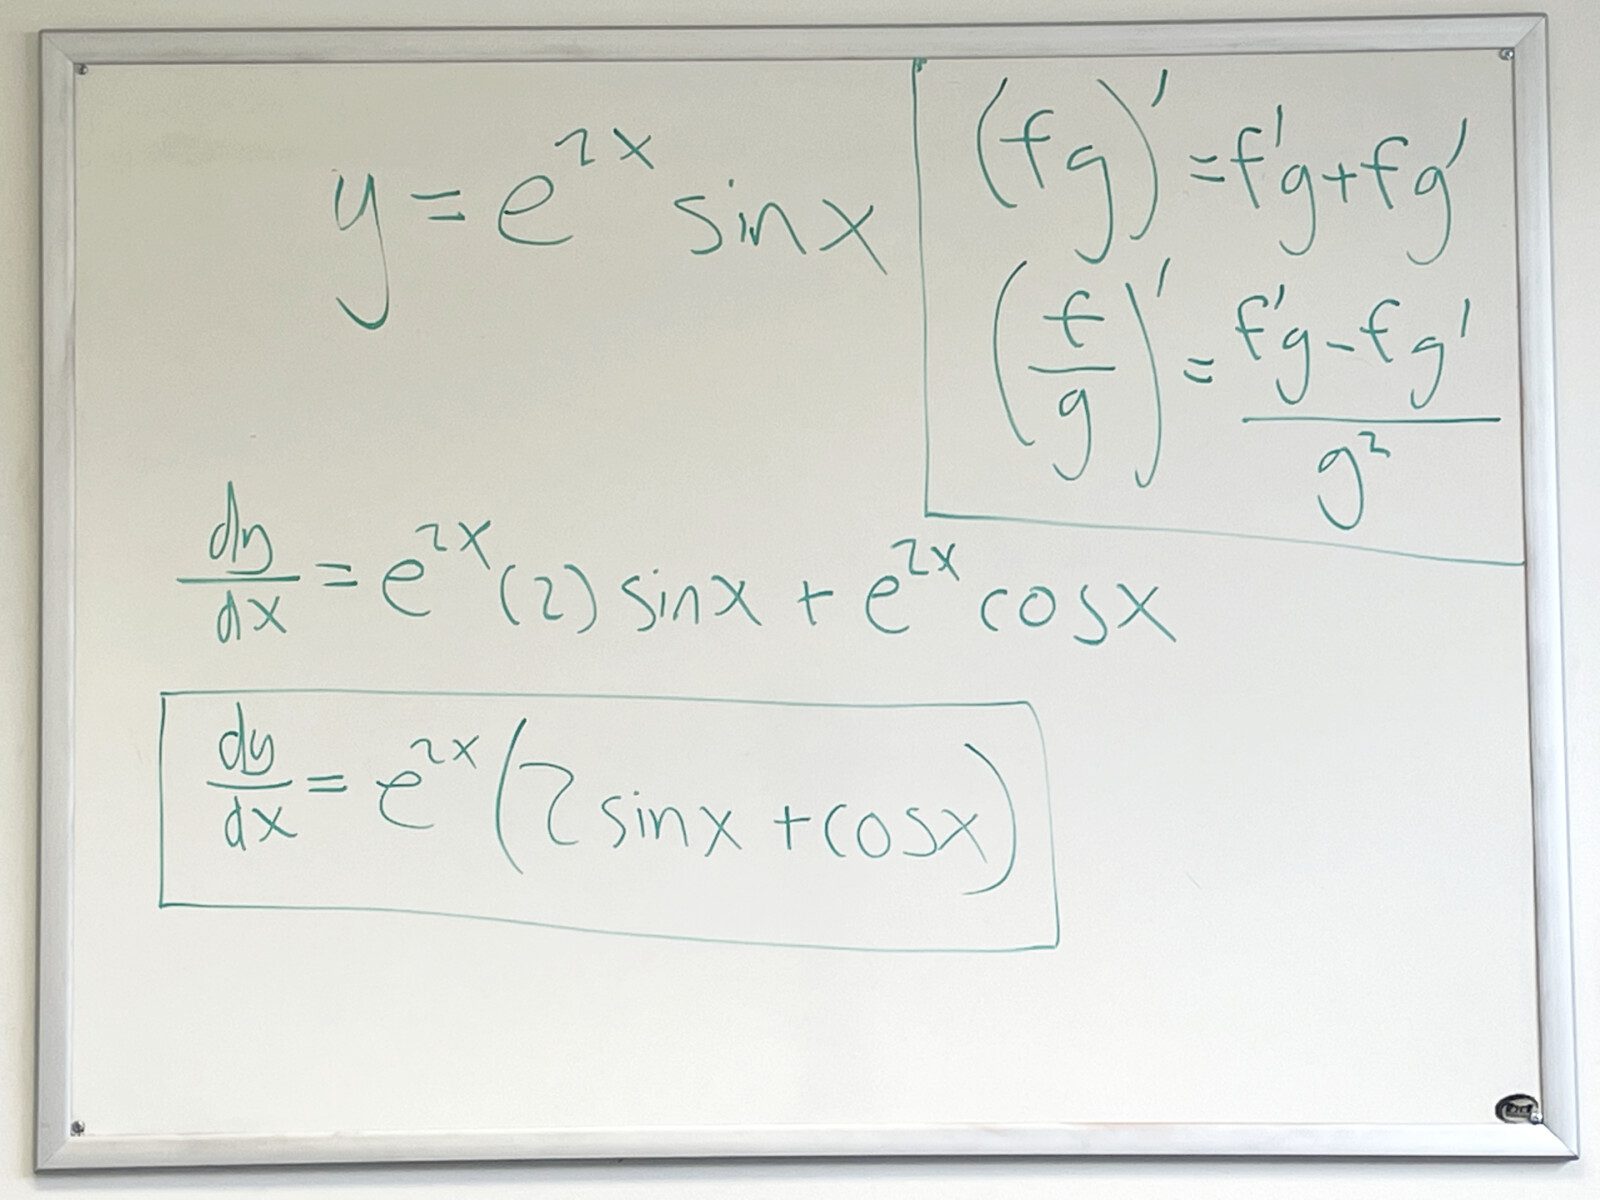 y = e^{2x} sin x
(fg)' = f'g + fg'
(f/g)' = (f'g - fg')/g^2
dy/dx = e^{2x} (2) sin x + e^{2x} cos x
dy/dx = e^{2x} (2 sin x + cos x)